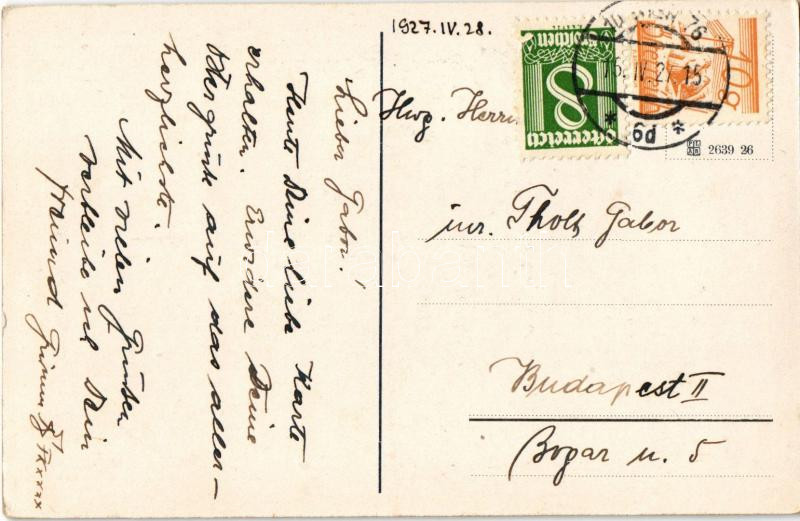 1927.IV.28.
Lieber Gabor!
Heute Deine liebe Karte
erhalten. Erwidere Deine
Ostergrüße auf das aller-
herzlichste.
Mit vielen Grüßen
verbleibe ich Dein
Freund
Hwg. Herrn
iur. Tholt Gabor
Budapest II
Bogar u. 5
8
Groschen
Österreich
10g
IV.27.15
* 6d *
2639 26